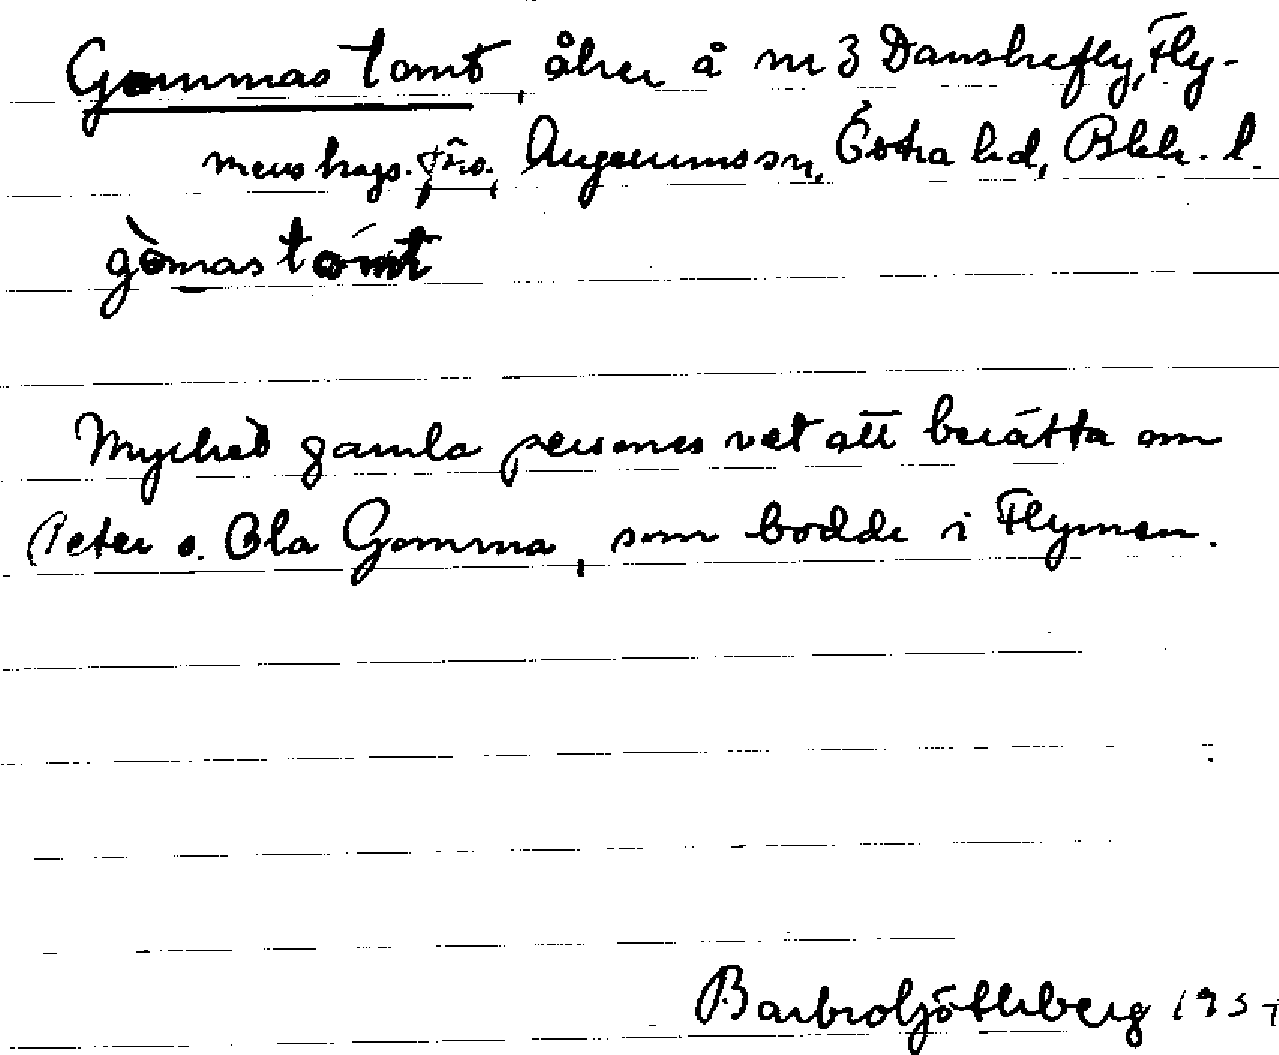 Gommas tomt, åker å nr 3 Danskefly, Fly-
mens hags. frs., Augerums sn, Östra hd, Blek. l.
gòmas tómt
Mycket gamla personer vet att berätta om
Peter o. Ola Gomma, som bodde i Flymen.
Barbro Götherberg